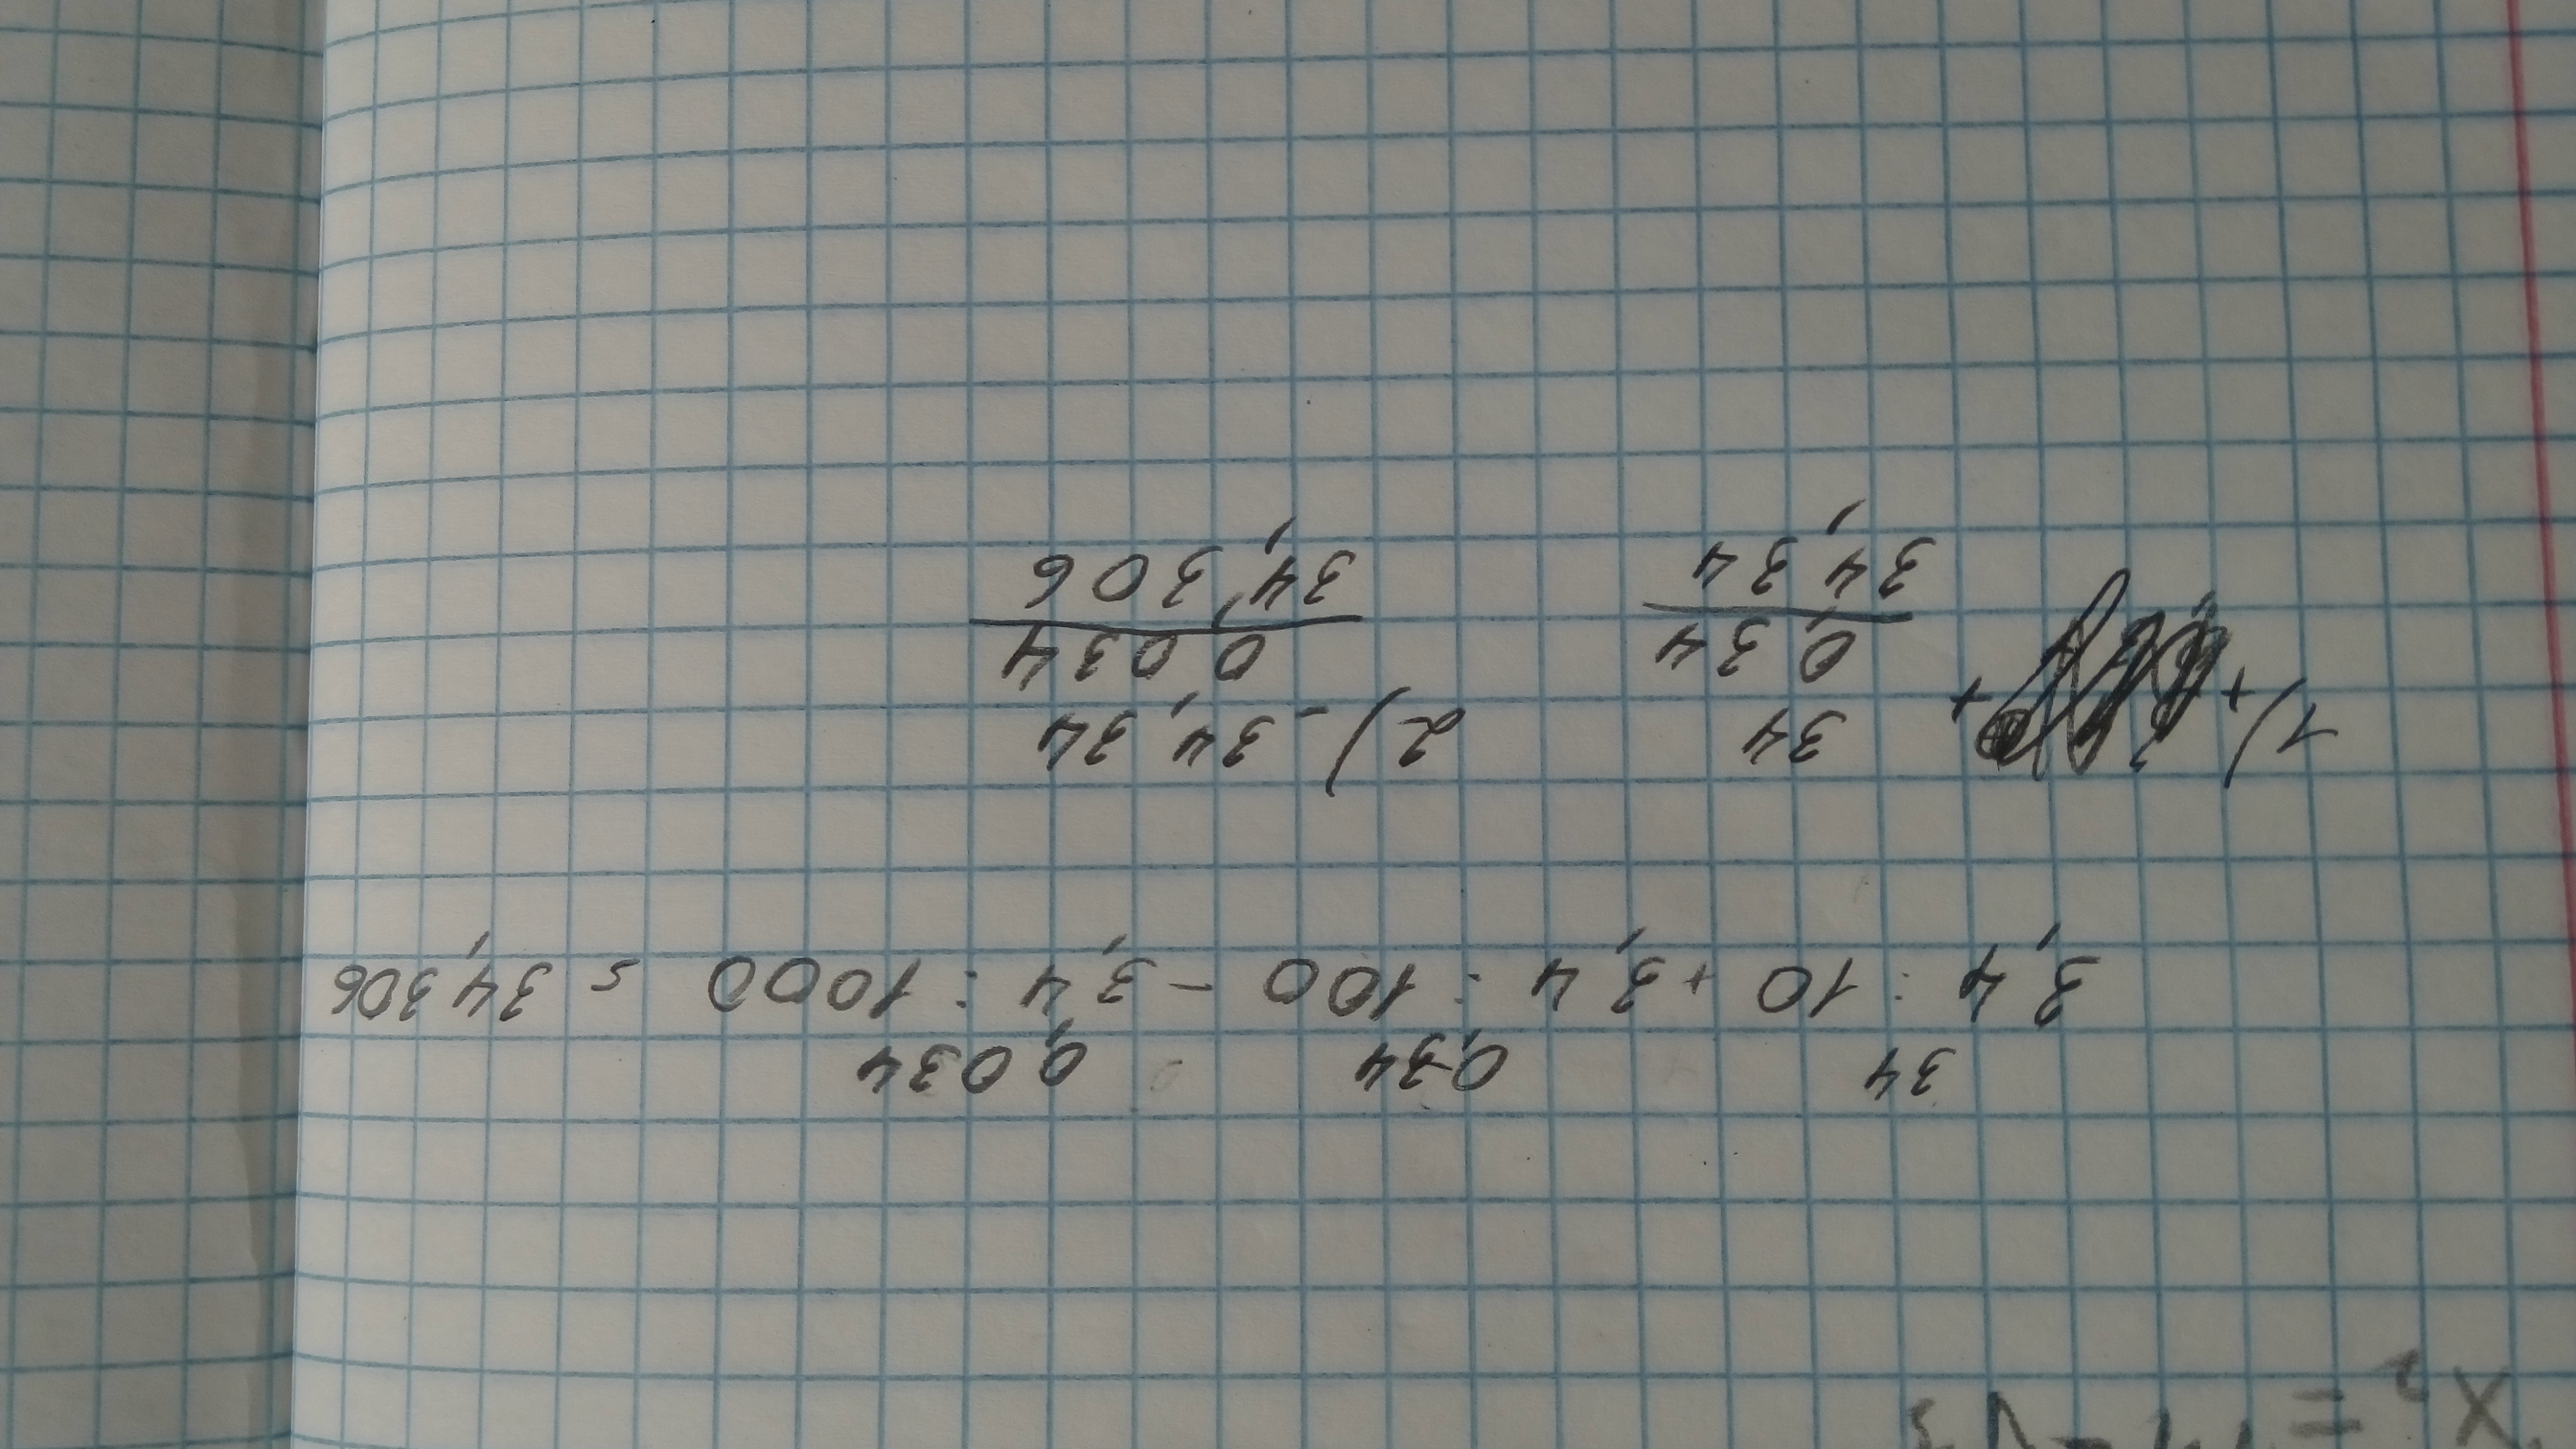 X₂ =
34 0,34 0,034
3,4 : 10 + 3,4 : 100 - 3,4 : 1000 = 34,306
1) + + 34 2) - 34,34
0,34 0,034
34,34 34,306